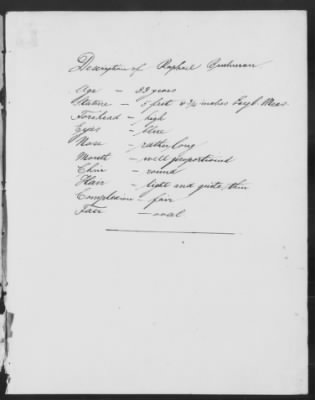 Description of Raphael Buchman
Age - 33 years
Stature - 5 feet 4 3/4 inches Engl. Meas.
Forehead - high
Eyes - blue
Nose - rather long
Mouth - well proportioned
Chin - round
Hair - light and quite thin
Complexion - fair
Face - oval